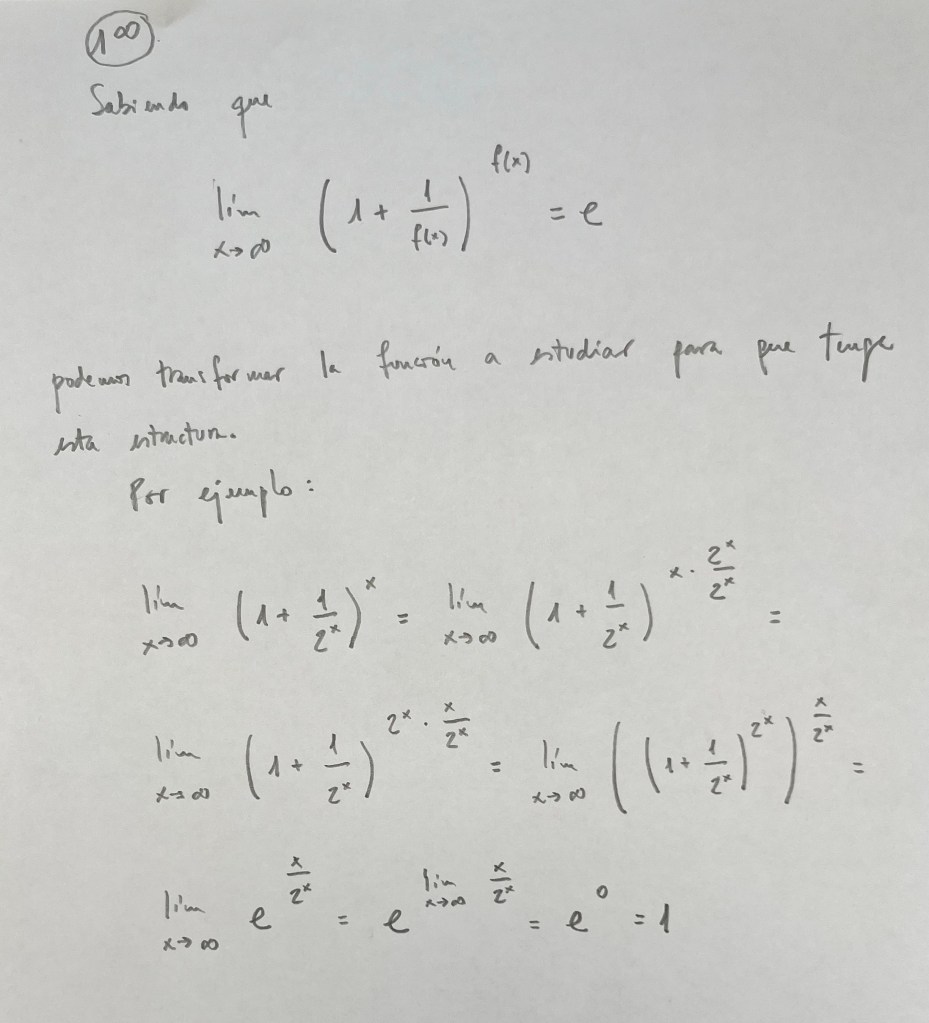 1^∞
Sabiendo que
lím x→∞ (1 + 1/f(x))^f(x) = e
podemos transformar la función a estudiar para que tenga
esta estructura.
Por ejemplo:
lím x→∞ (1 + 1/2^x)^x = lím x→∞ (1 + 1/2^x)^(x · 2^x/2^x) =
lím x→∞ (1 + 1/2^x)^(2^x · x/2^x) = lím x→∞ ((1 + 1/2^x)^(2^x))^(x/2^x) =
lím x→∞ e^(x/2^x) = e^(lím x→∞ x/2^x) = e^0 = 1